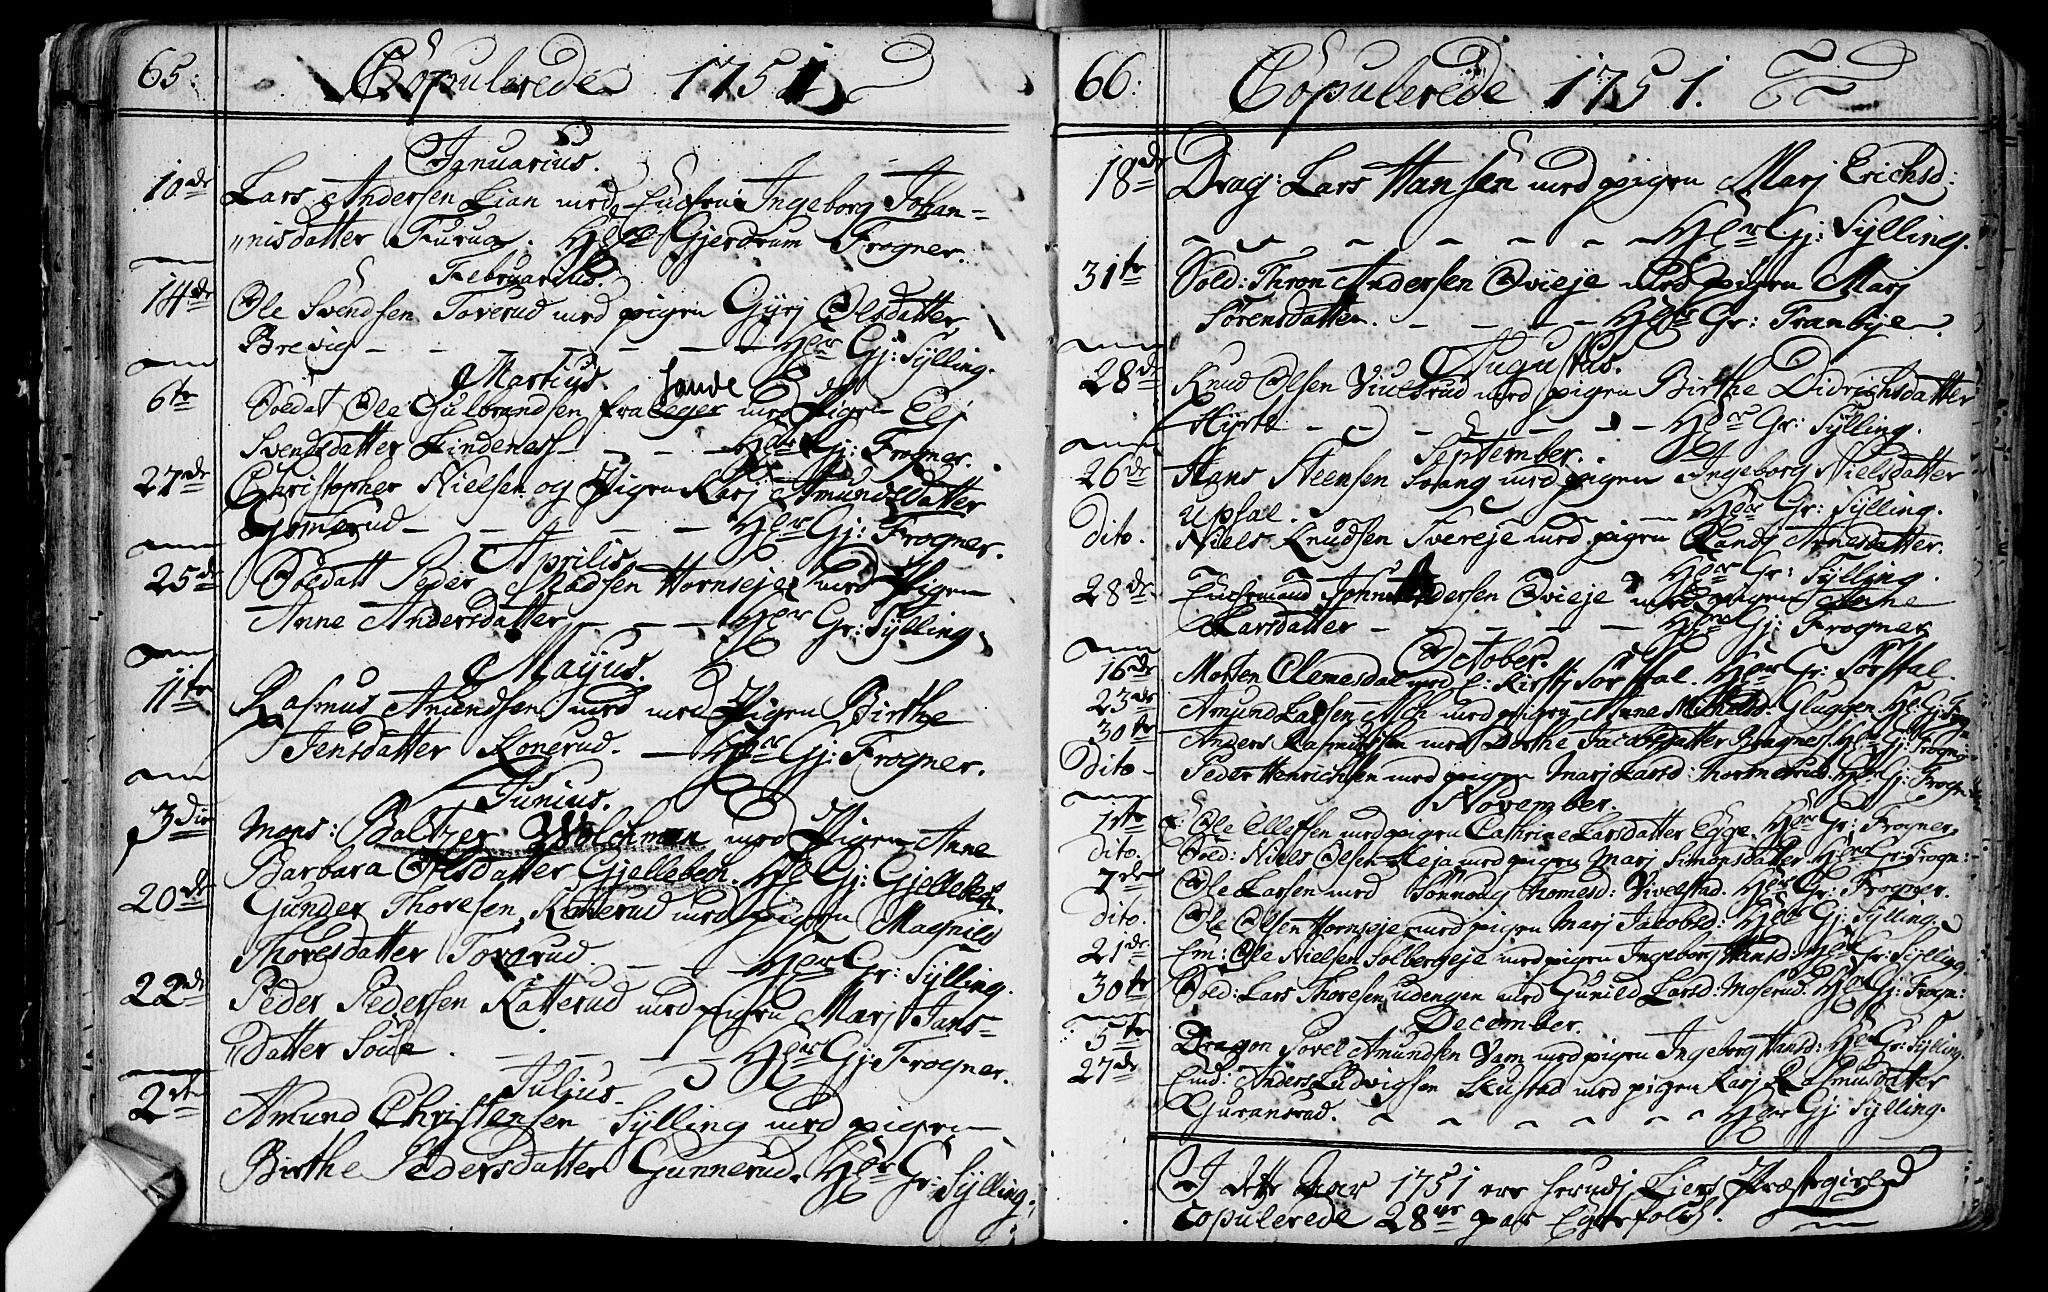 65:
Copulerede 1751
Januarius.
10de Lars Andersen Lian med Enchen Ingeborg Johan=
nisdatter Furua. Gjerdrum Frogner.
Februarius.
14de Ole Svendsen Toverud med pigen Gyrj Olsdatter
Brevig - - - - - - Gj: Sylling.
Martius. Sande
6te Soldat Ole Gulbrandsen fra med Pigen Elj
Svendsdatter Lindenes - - - Gj: Frogner.
27de Christopher Nielsen og Pigen Karj Amundsdatter
Gomerud - - - - Gj: Frogner.
Aprilis.
25de Soldatt Peder Madsen Hornseje med Pigen
Anne Andersdatter - - - Gr: Sylling.
Majus.
11te Rasmus Amundsen med med Pigen Birthe
Jensdatter Konerud. - Gj: Frogner.
Junius.
3die Mons: Baltzer Wolchman med Pigen Anne
Barbara Olsdatter Gjellebech. Gj: Gjellebech.
20de Gunder Thoresen Katterud med pigen Magnild
Thoresdatter Toverud. - - Gr: Sylling.
22de Peder Pedersen Katterud med pigen Marj Jans=
datter Solie. - - - - Gj: Frogner.
Julius.
2den Amund Christensen Sylling med pigen
Birthe Pedersdatter Gunnerud. Gr: Sylling.
66:
Copulerede 1751.
18de Drag: Lars Hansen med pigen Marj Erichsd:
- - - - - - Gj: Sylling.
31te Sold: Thron Andersen Qvieje med pigen Marj
Sörensdatter. - - - - Gr: Tranbye.
Augustus.
28de Knud Olsen Viulsrud med pigen Birthe Didrichsdatter
Hyrte - - - - - - Gr: Sylling.
September.
26de Hans Steensen Svang med pigen Ingeborg Nielsdatter
Upsal. - - Gr: Sylling.
Dito. Niels Knudsen Svereje med pigen Randj Arnesdatter.
Gr: Sylling.
28de Enchemand John Andersen Qvieje med pigen Anne
Larsdatter - - - - - Gj: Frogner.
October.
16de Morten Clemesdal med E: Kirstj Sörsdal. Gr: Sörsdal.
23de Amund Larsen med pigen Anne Gluggen. Gj: Frogn:
30te Anders Rasmussen med Dorthe Jacobsdatter Bragnes. Gj: Frogn:
Dito - Peder Henrichsen med pigen Marj Larsd: Gj: Frogn:
November.
1te Ole Ellefsen med pigen Cathrine Larsdatter Egge. Gr: Frogner.
Dito. Sold: Niels Olsen med pigen Marj Simonsdatter. Gr: Frogn:
7de Ole Larsen med Sönnoug Thomesd: Vivelstad. Gr: Frogner.
Dito. Ole Olsen Hornseje med pigen Marj Jacobsd: Gj: Sylling.
21de Em: Ole Nielsen Solbergeje med pigen Ingeborg Hansd: Gr: Sylling.
30te Sold: Lars Thoresen udengen med Gunild Larsd: Moserud. Gj: Frogn:
December.
5te Dragon Povel Amundsen Vam med pigen Ingeborg Hansd: Gr: Sylling.
27de Emd: Anders Ludvigsen med pigen Karj Rasmusdatter
Guransrud. - - - - - Gj: Sylling.
I dette Aar 1751 ere her udj Liers Præstegield
Copulerede 28ve par Egtefolch.